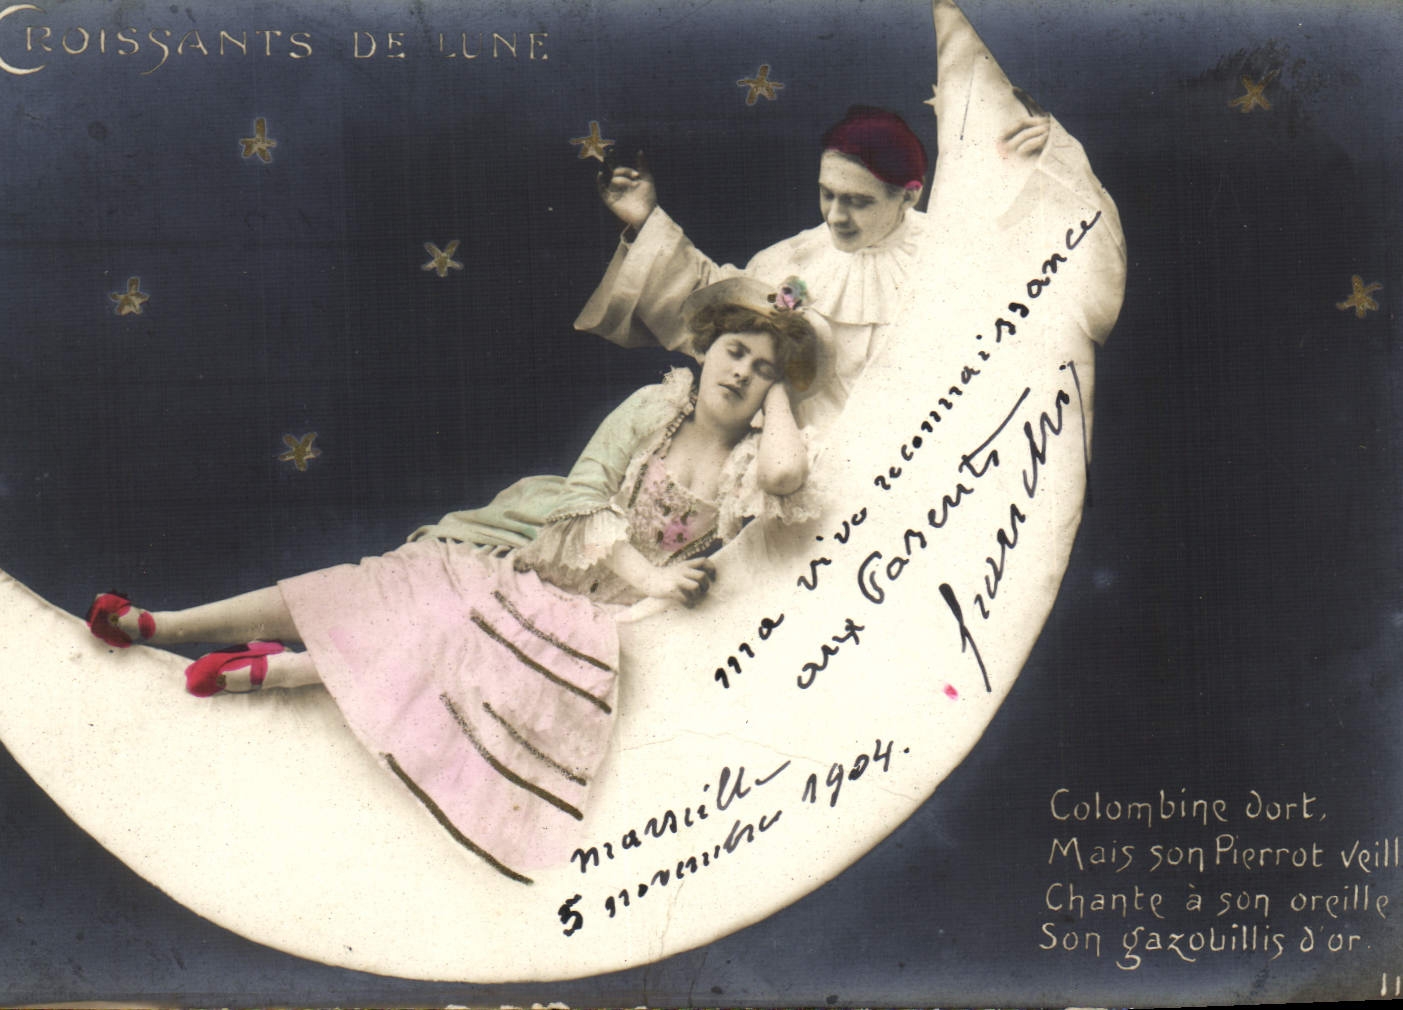 CROISSANTS DE LUNE
ma vive reconnaissance
aux Parents
marseille
5 novembre 1904.
Colombine dort,
Mais son Pierrot veill
Chante à son oreille
Son gazouillis d'or.
11